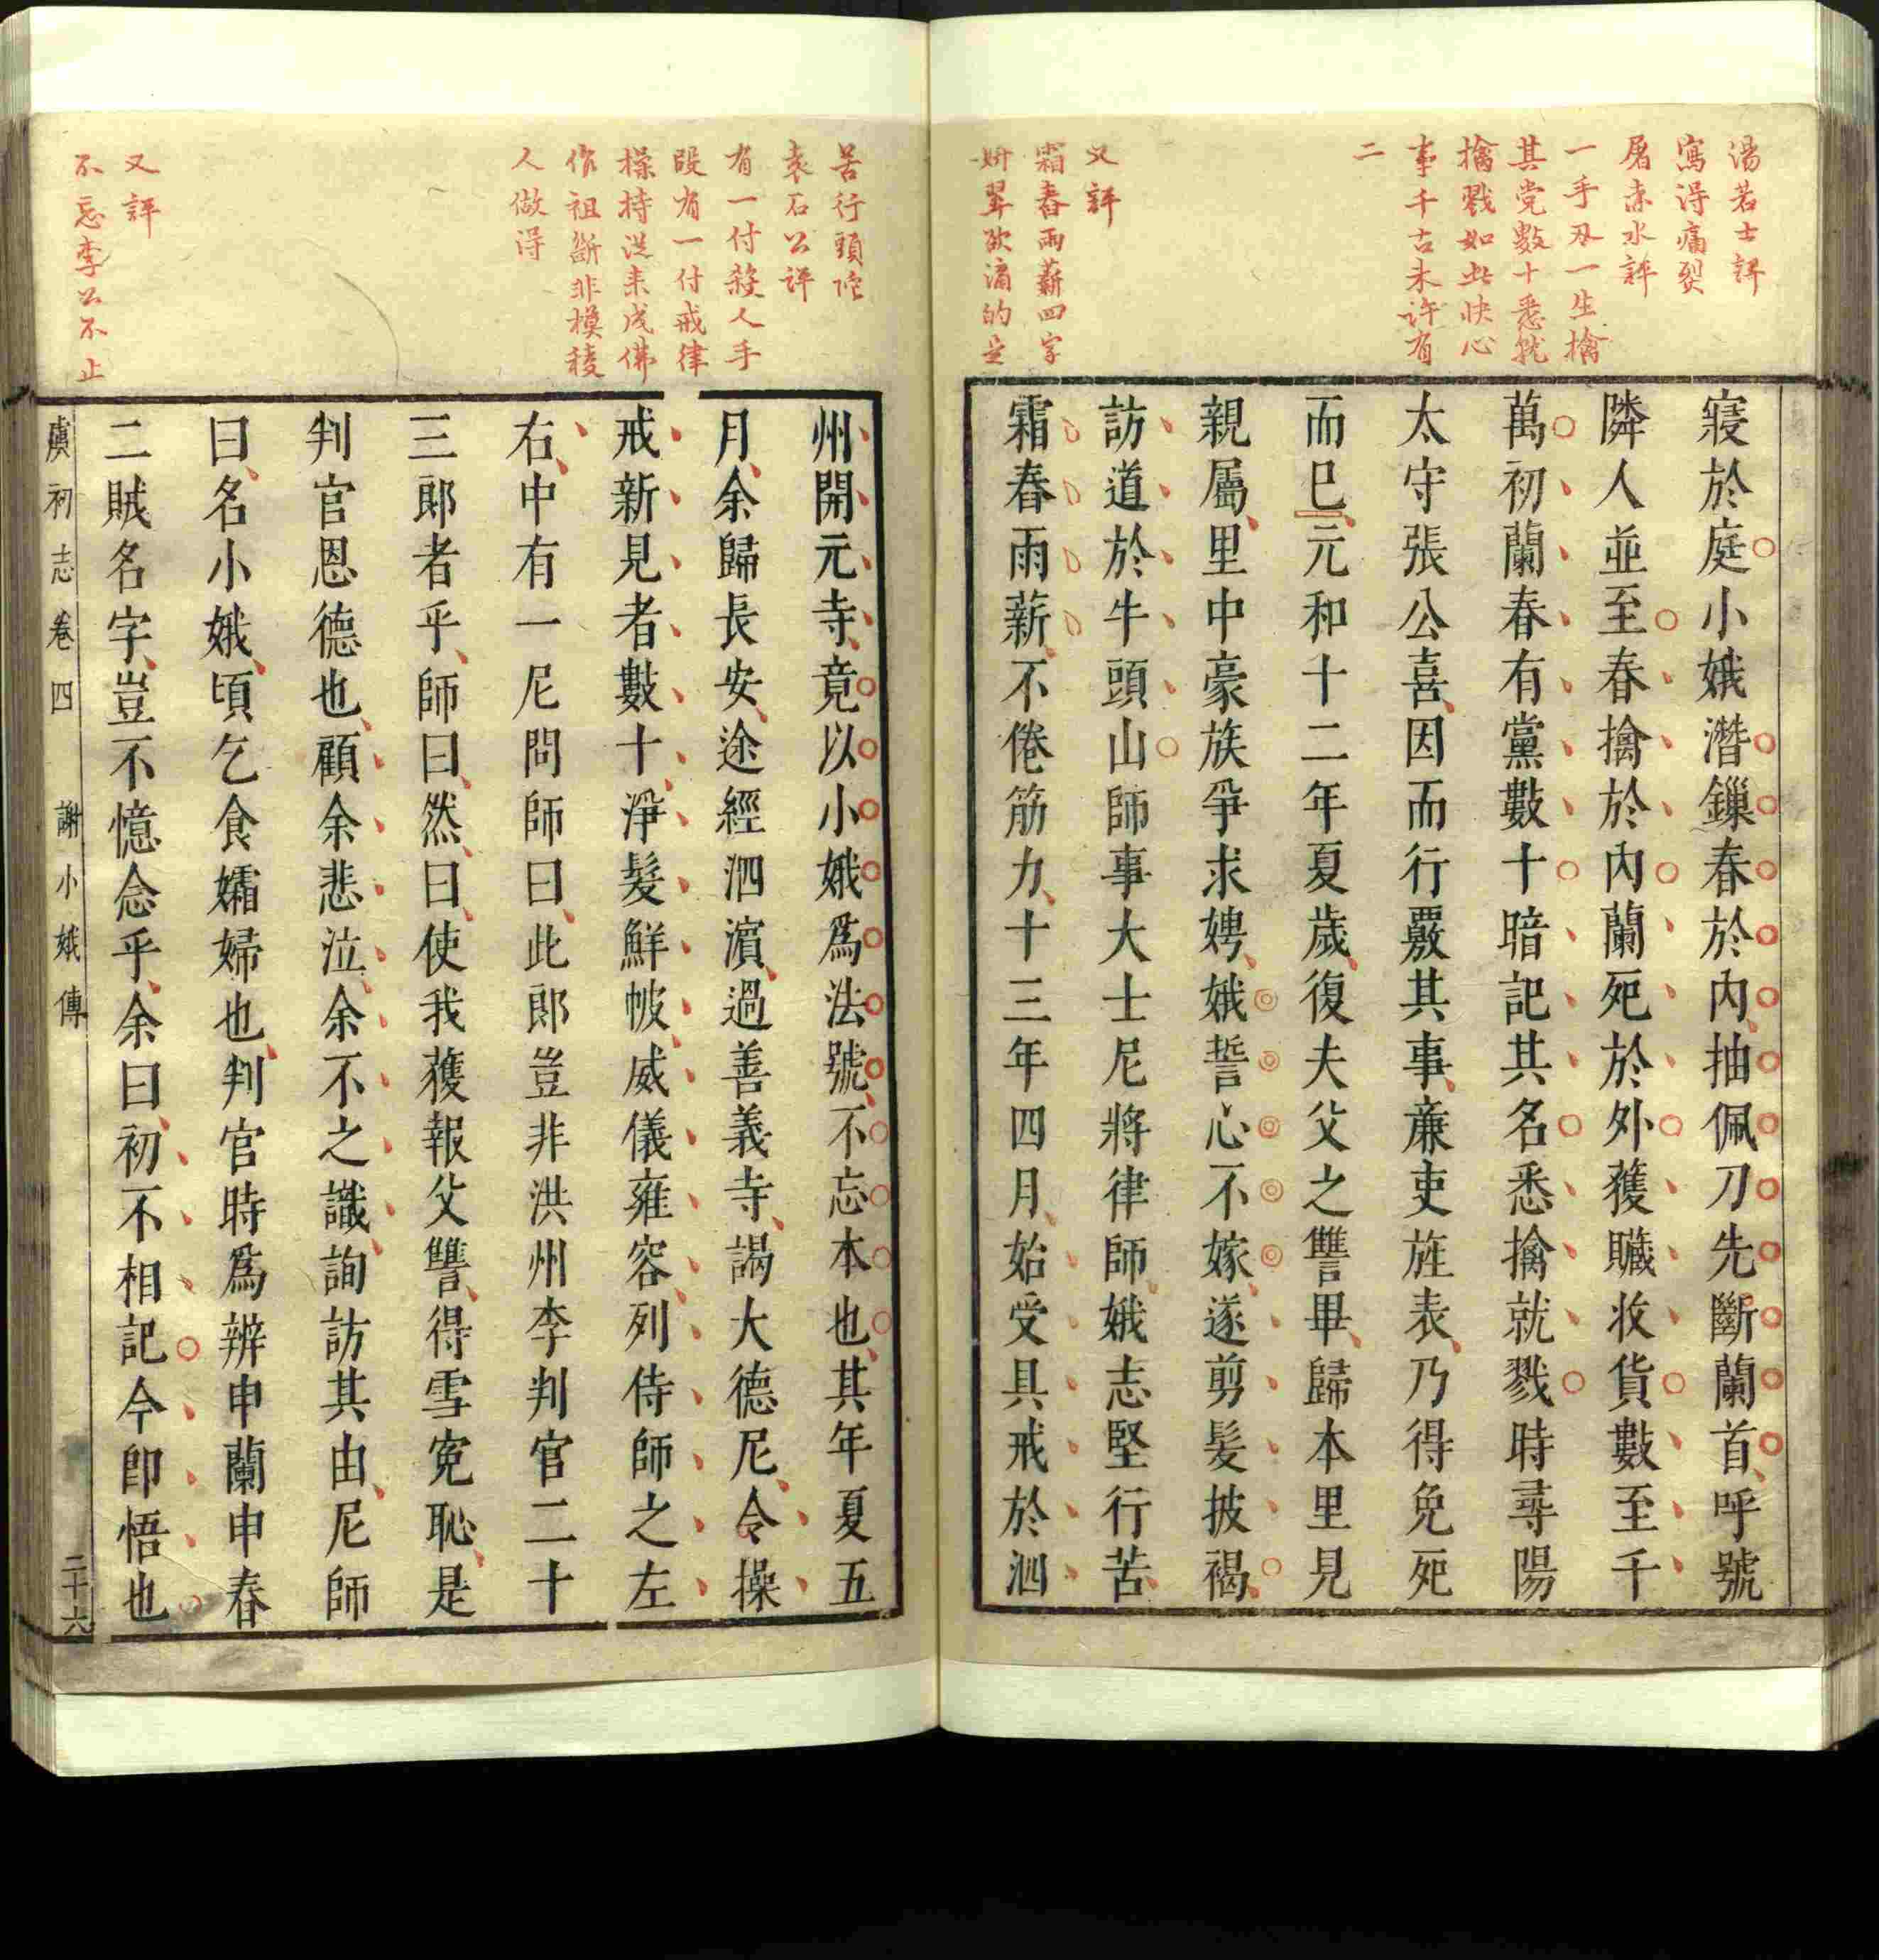 湯若士評
寫得痛烈
屠赤水評
一手刃一生擒
其党數十悉就
擒戮如此快心
事千古未許有
二
又評
霜舂雨薪四字
妍翠欲滴的是
寢於庭小娥潛鏁春於內抽佩刀先斷蘭首呼號
隣人並至春擒於內蘭死於外獲贓收貨數至千
萬初蘭春有黨數十暗記其名悉擒就戮時尋陽
太守張公喜因而行覈其事廉吏旌表乃得免死
而已元和十二年夏歲復夫父之讐畢歸本里見
親屬里中豪族爭求娉娥誓心不嫁遂剪髮披褐
訪道於牛頭山師事大士尼將律師娥志堅行苦
霜舂雨薪不倦筋力十三年四月始受具戒於泗
苦行頭陀
袁石公評
有一付殺人手
段有一付戒律
操持從來成佛
作祖斷非模稜
人做得
又評
不忘李公不止
州開元寺竟以小娥爲法號不忘本也其年夏五
月余歸長安途經泗濵過善義寺謁大德尼令操
戒新見者數十淨髮鮮帔威儀雍容列侍師之左
右中有一尼問師曰此郎豈非洪州李判官二十
三郎者乎師曰然曰使我獲報父讐得雪寃恥是
判官恩德也顧余悲泣余不之識詢訪其由尼師
曰名小娥頃乞食孀婦也判官時爲辨申蘭申春
二賊名字豈不憶念乎余曰初不相記今卽悟也
虞初志卷四 謝小娥傳 二十六